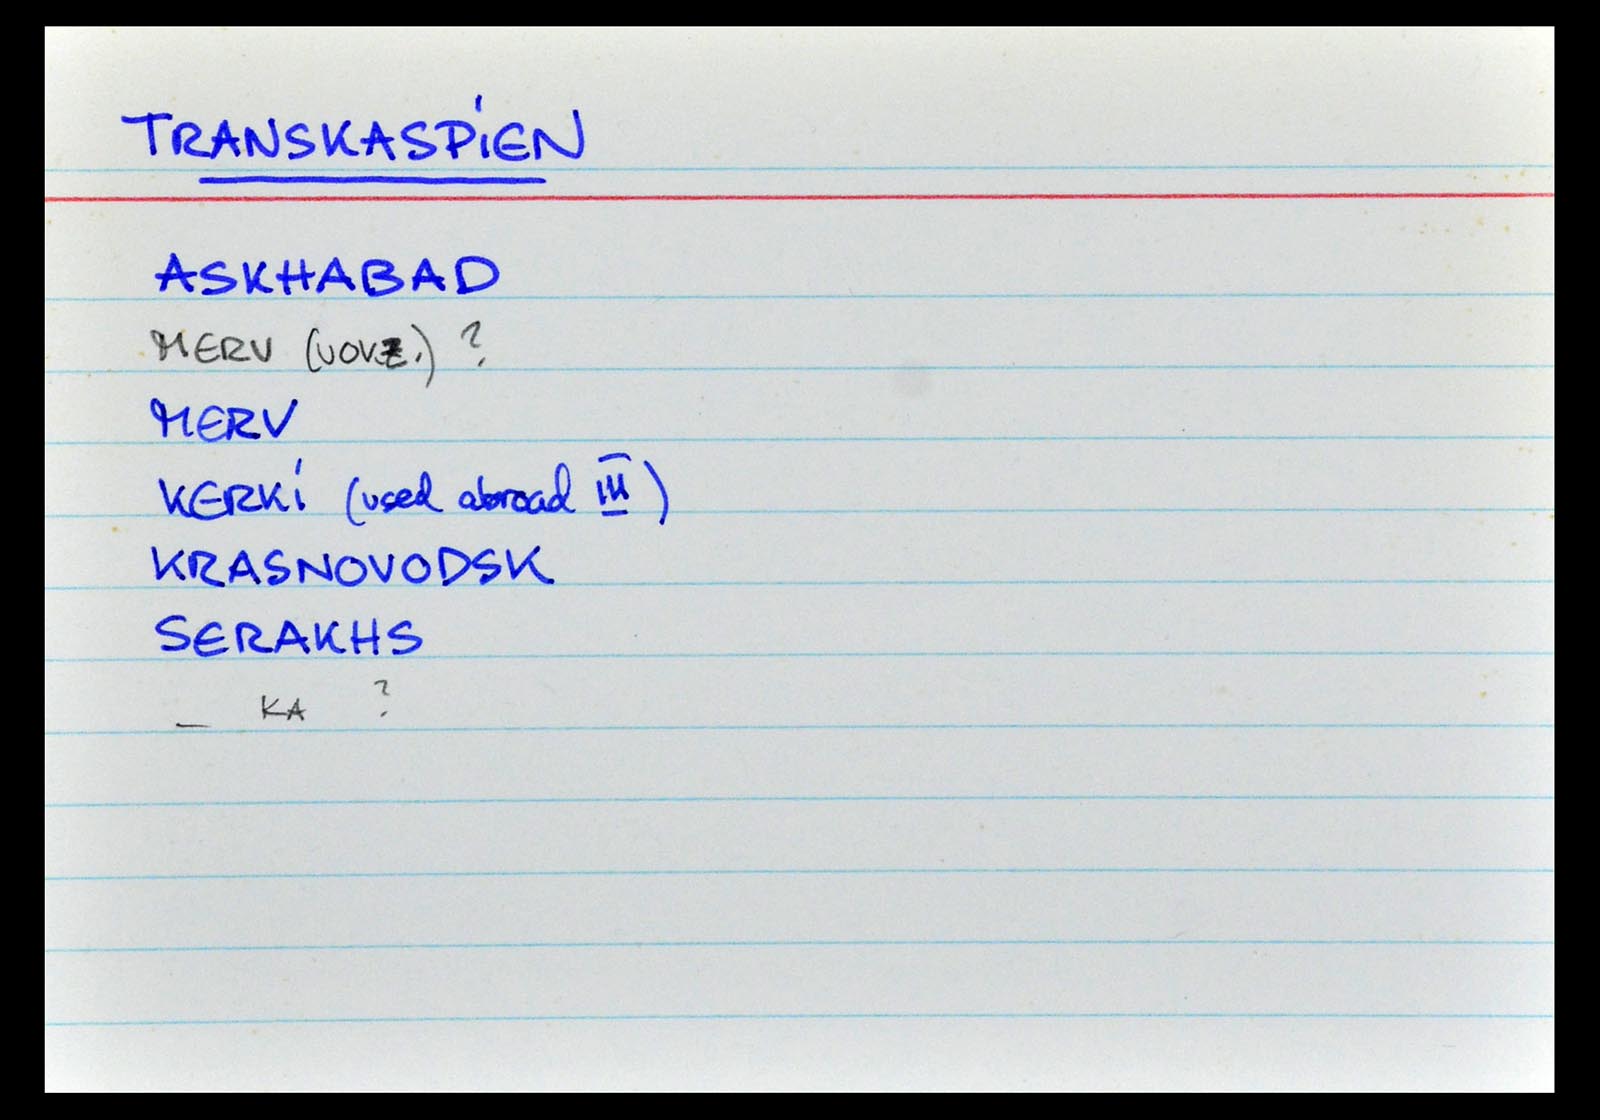 TRANSKASPIEN
ASKHABAD
MERV (VOKZ.) ?
MERV
KERKI (used abroad III)
KRASNOVODSK
SERAKHS
_ KA ?